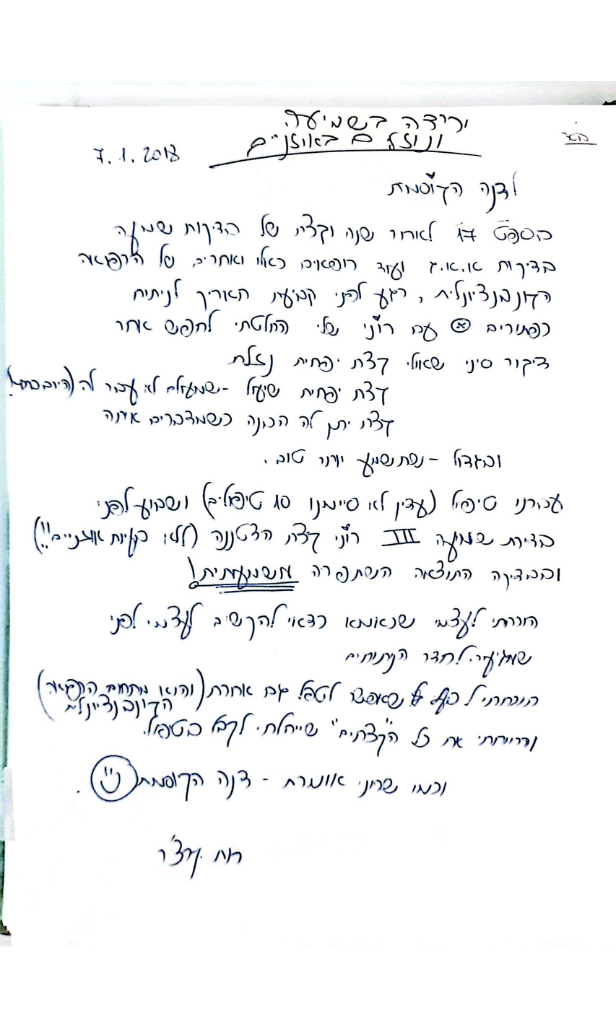 בס"ד
ירידה בשמיעה
ונוזלים באוזניים
7.1.2018
לדנה הקוסמת
בספט 17 לאחר שנה וקצת של בדיקות שמיעה
בדיקות א.א.ג ועוד רופאים כאלו ואחרים של הרפואה
הקונבנציונלית, רגע לפני קביעת תאריך לניתוח
כפתורים עם רוני שלי החלטתי לחפש אחר
דיקור סיני שאולי קצת יפחית נזלת
קצת יפחית שיעול - שמעולם לא עבר לה
קצת יתן לה הבנה כשמדברים איתה
ובגדול - שתשמע יותר טוב.
עברנו טיפול (עדין לא סיימנו 10 טיפולים) ושבוע לפני
בדיקת שמיעה III רוני קצת הצטננה
ובבדיקה התוצאה השתפרה משמעותית!
חזרתי לעצמי שכאמא כדאי להקשיב לעצמי לפני
שמגיעה לחדר הניתוחים
הוכחתי ל שאפשר לטפל גם אחרת (והוא מתחום הרפואה
הקונבנציונלית)
וראיתי את כל ה"קצתים" שייחלתי לקבל בטיפול.
וכמו שרוני אומרת - דנה הקוסמת .
רות